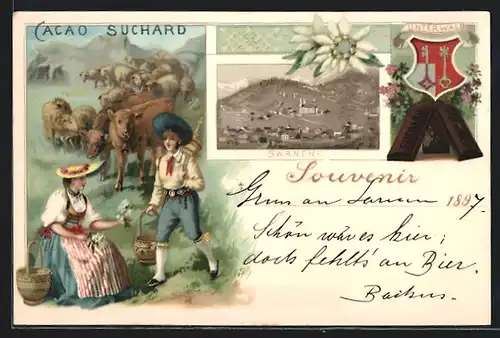 CACAO SUCHARD
UNTERWALD
SARNEN.
Souvenir
Gruss an Sarnen 1897
Schön wär es hier;
doch fehlt's an Bier.